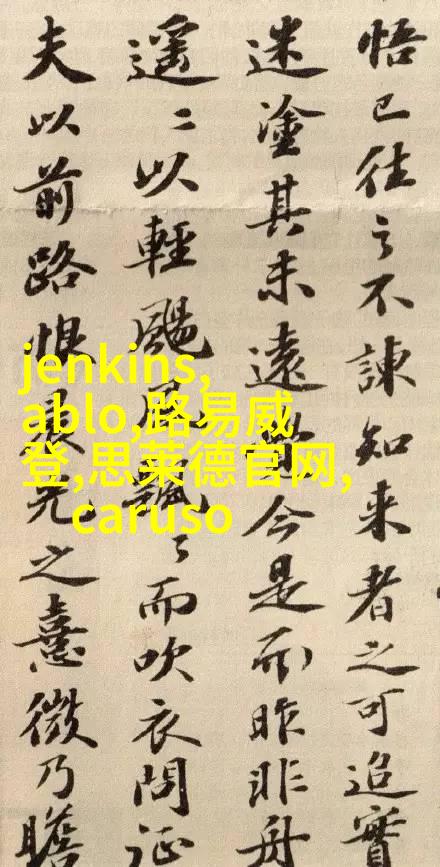 悟已往之不諫知来者之可追實
迷塗其未遠覺今是而昨非舟
遥〻以輕颺風飄〻而吹衣問征
夫以前路恨晨光之熹微乃瞻
jenkins,
ablo,路易威
登,思莱德官网,
caruso